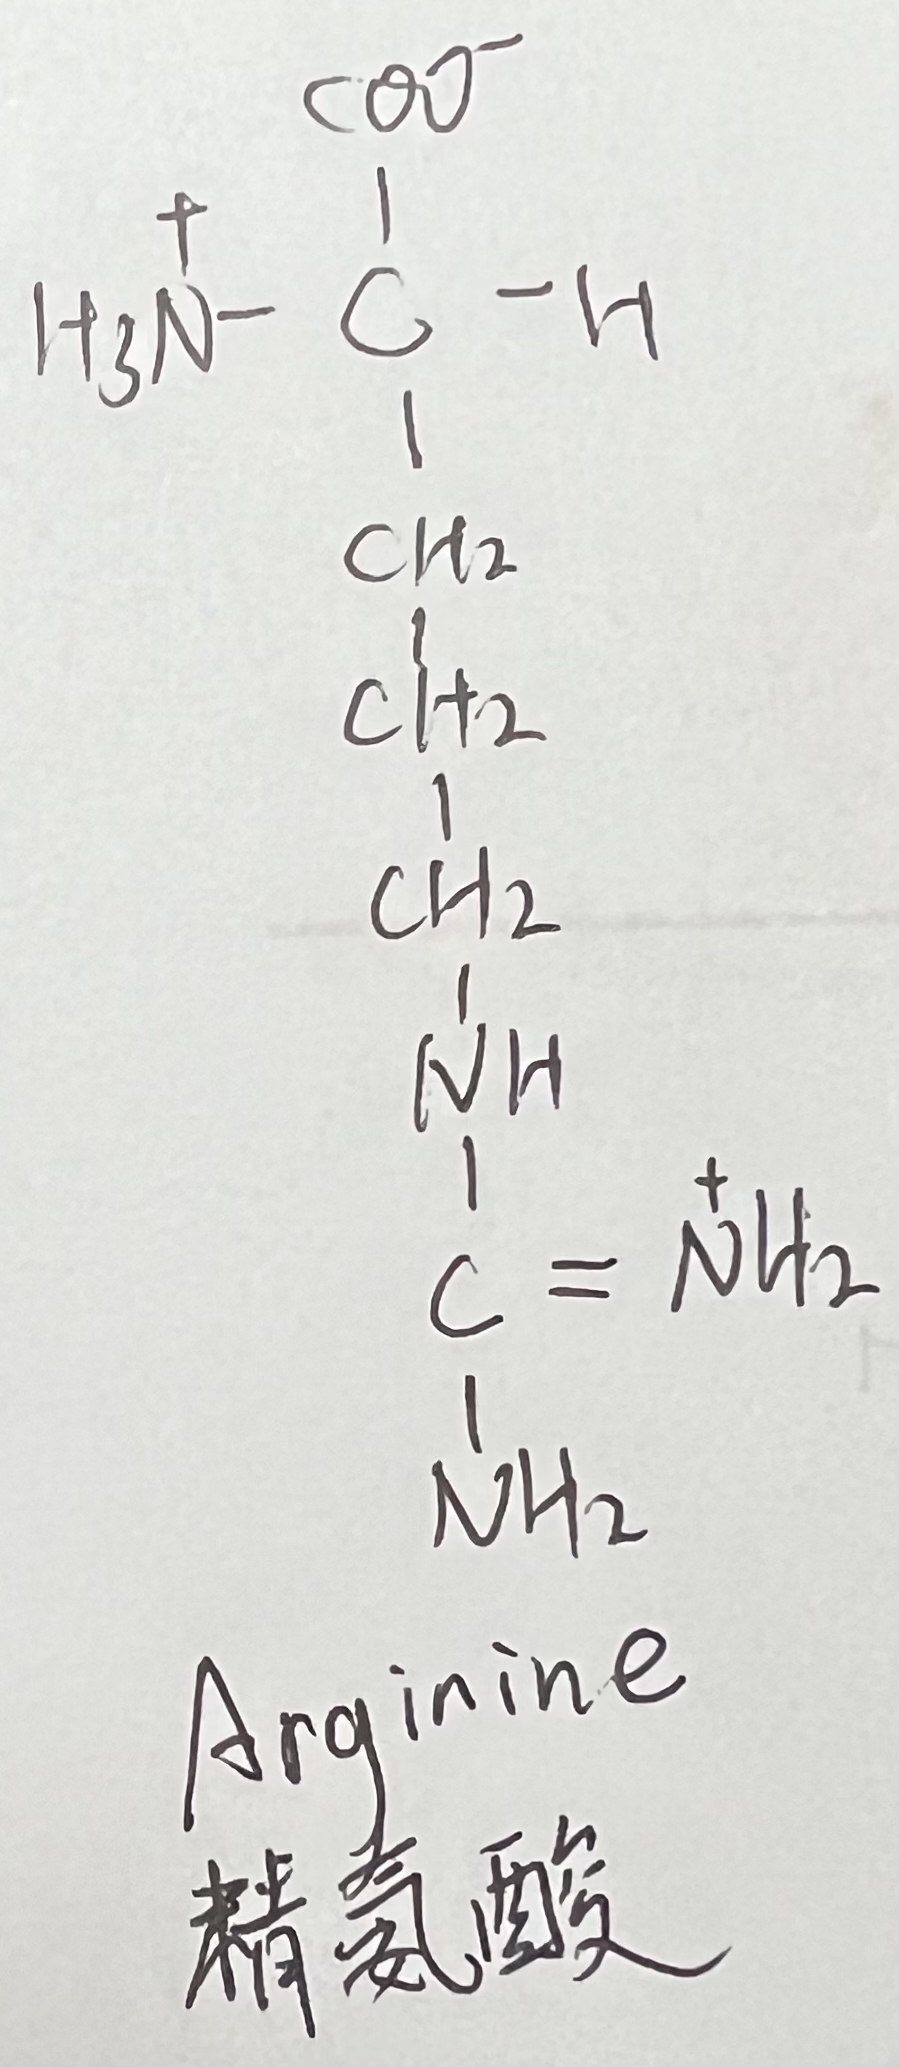 COO⁻
H₃N⁺ - C - H
CH₂
CH₂
CH₂
NH
C = N⁺H₂
NH₂
Arginine
精氨酸